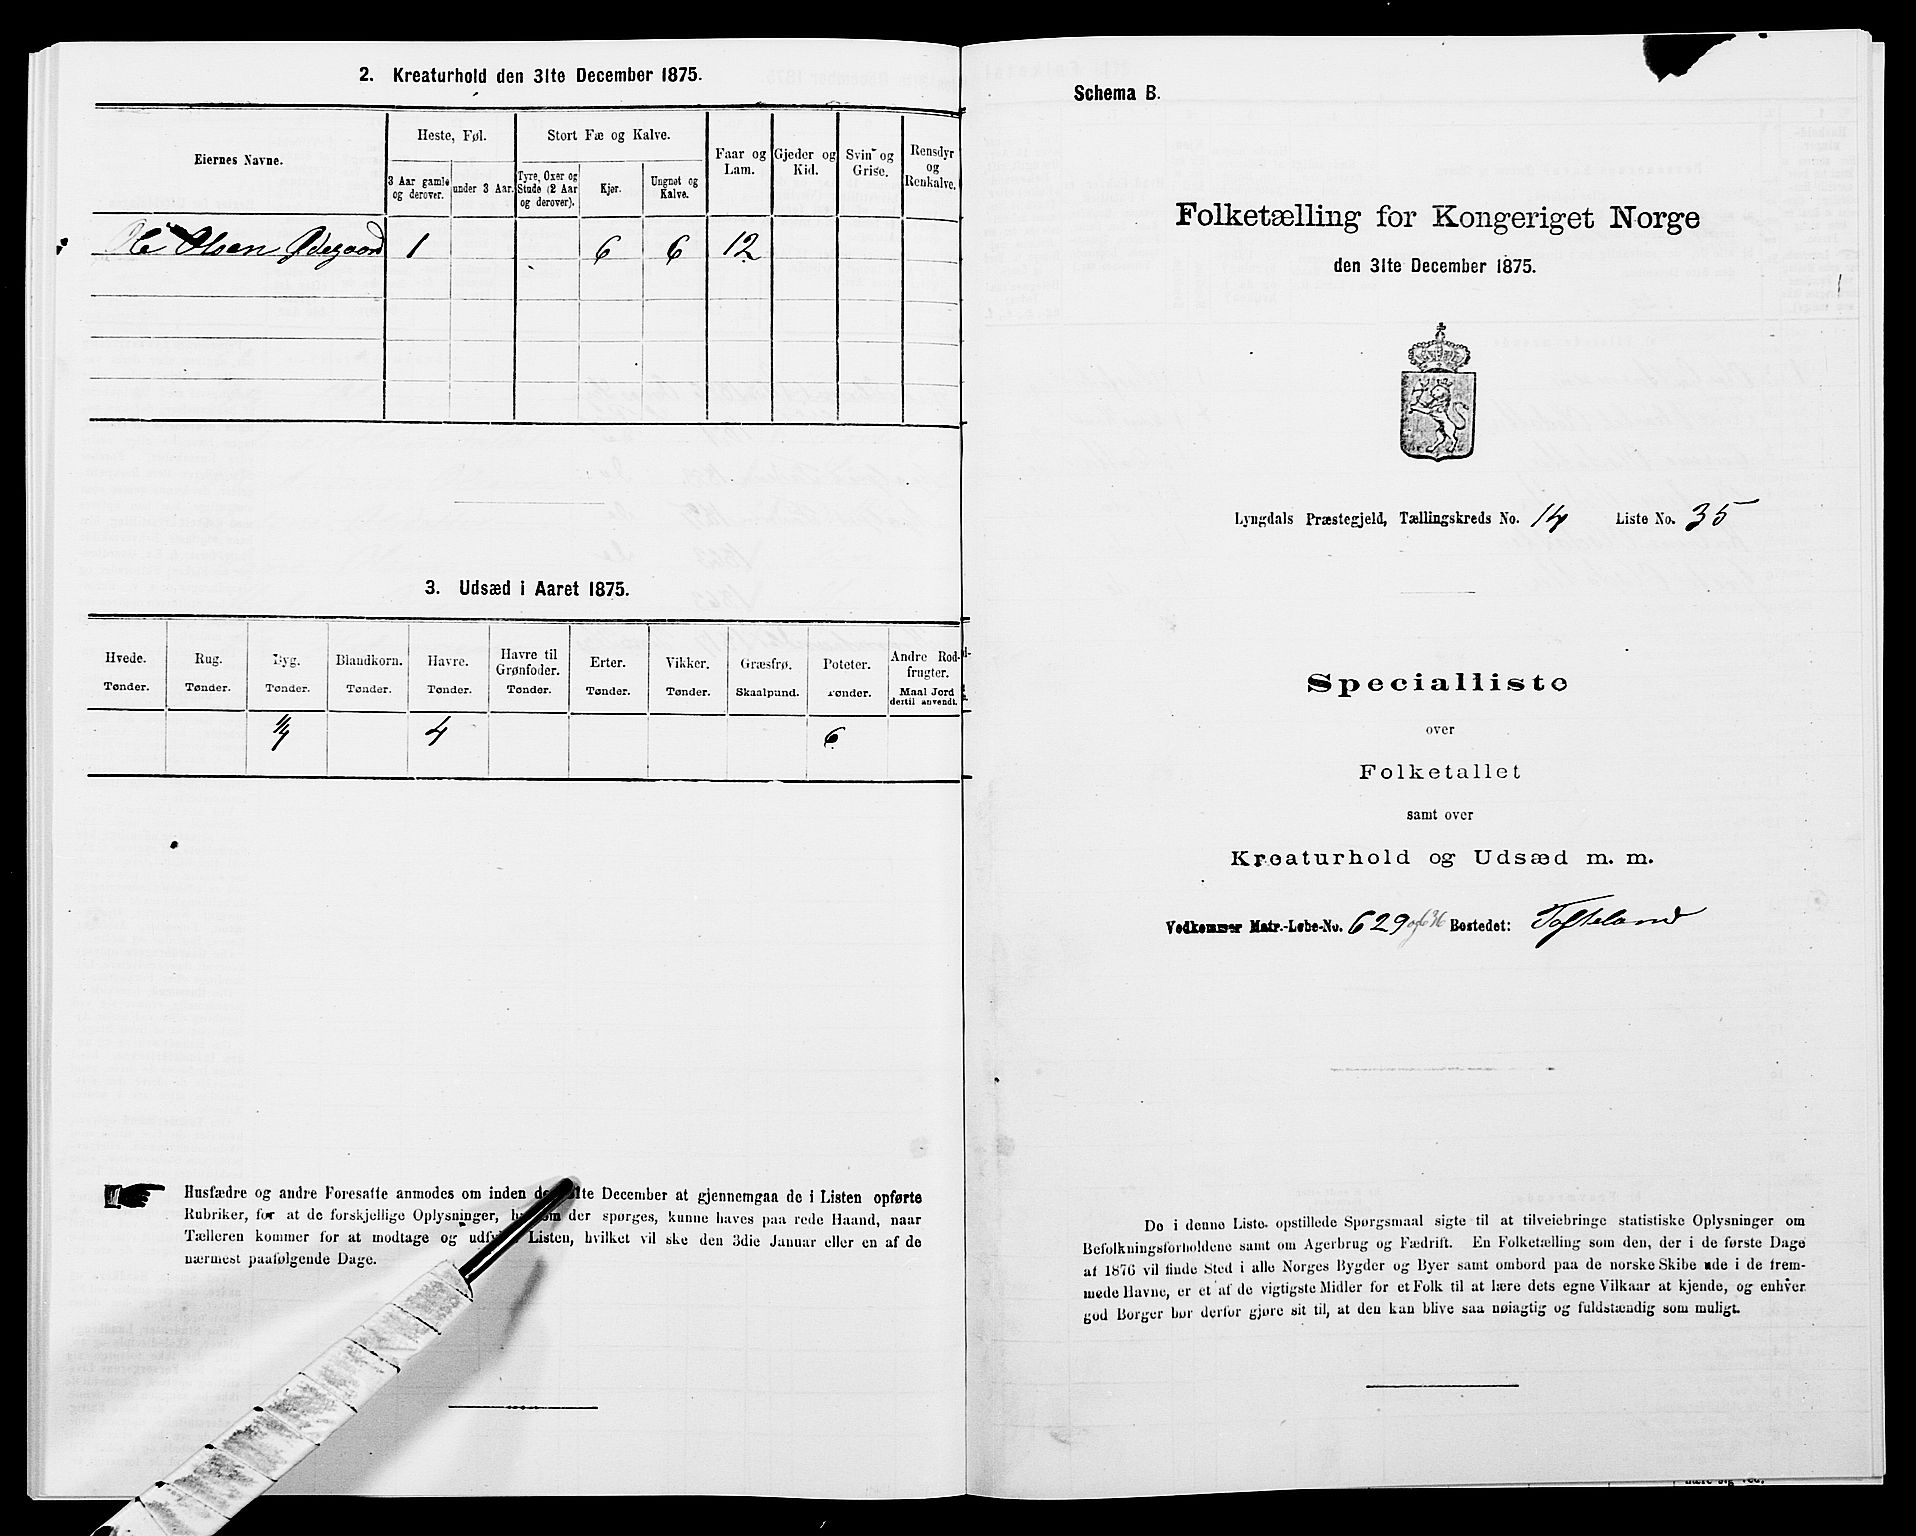 2. Kreaturhold den 31te December 1875.
Eiernes Navne.
Heste, Føl.
Stort Fæ og Kalve.
Faar og Lam.
Gjeder og Kid.
Svin og Grise.
Rensdyr og Renkalve.
3 Aar gamle og derover.
under 3 Aar.
Tyre, Oxer og Stude (2 Aar og derover).
Kjør.
Ungnøt og Kalve.
Olsen Ødegaard 1 6 6 12
3. Udsæd i Aaret 1875.
Hvede. Rug. Byg. Blandkorn. Havre. Havre til Grønfoder. Erter. Vikker. Græsfrø. Poteter. Andre Rodfrugter.
Tønder. Tønder. Tønder. Tønder. Tønder. Tønder. Tønder. Tønder. Skaalpund. Tønder. Maal Jord dertil anvendt.
4 6
Husfædre og andre Foresatte anmodes om inden den 31te December at gjennemgaa de i Listen opførte
Rubriker, for at de forskjellige Oplysninger, hvorom der spørges, kunne haves paa rede Haand, naar
Tælleren kommer for at modtage og udfylde Listen, hvilket vil ske den 3die Januar eller en af de
nærmest paafølgende Dage.
Schema B.
Folketælling for Kongeriget Norge
den 31te December 1875.
Lyngdals Præstegjeld, Tællingskreds No. 14 Liste No. 35
Specialliste
over
Folketallet
samt over
Kreaturhold og Udsæd m. m.
Vedkommer Matr.-Løbe-No. 629 og 636 Bostedet: Tofteland
De i denne Liste opstillede Spørgsmaal sigte til at tilveiebringe statistiske Oplysninger om
Befolkningsforholdene samt om Agerbrug og Fædrift. En Folketælling som den, der i de første Dage
af 1876 vil finde Sted i alle Norges Bygder og Byer samt ombord paa de norske Skibe ude i de frem-
mede Havne, er et af de vigtigste Midler for et Folk til at lære dets egne Vilkaar at kjende, og enhver
god Borger bør derfor gjøre sit til, at den kan blive saa nøiagtig og fuldstændig som muligt.